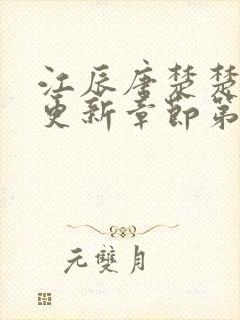 江辰唐楚楚
更新章節第
元雙月